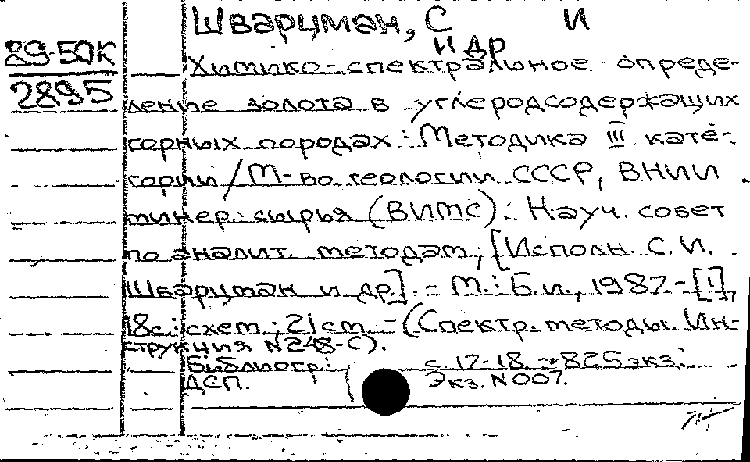 Шварцман, С И
и др
89-50К
2895
Химико-спектральное опреде-
ление золота в углеродсодержащих
горных породах: Методика III кате-
гории / М-во геологии СССР, ВНИИ
минер. сырья (ВИМС). Науч. совет
по аналит. методам; [Исполн. С.И.
Шварцман и др]. - М.: Б.и., 1987 - [!]
18с.: схем.; 21 см. - (Спектр. методы. Ин-
струкция N 248-С).
Библиогр.: с. 17-18. - 825 экз.
ДСП. Экз. N 007.